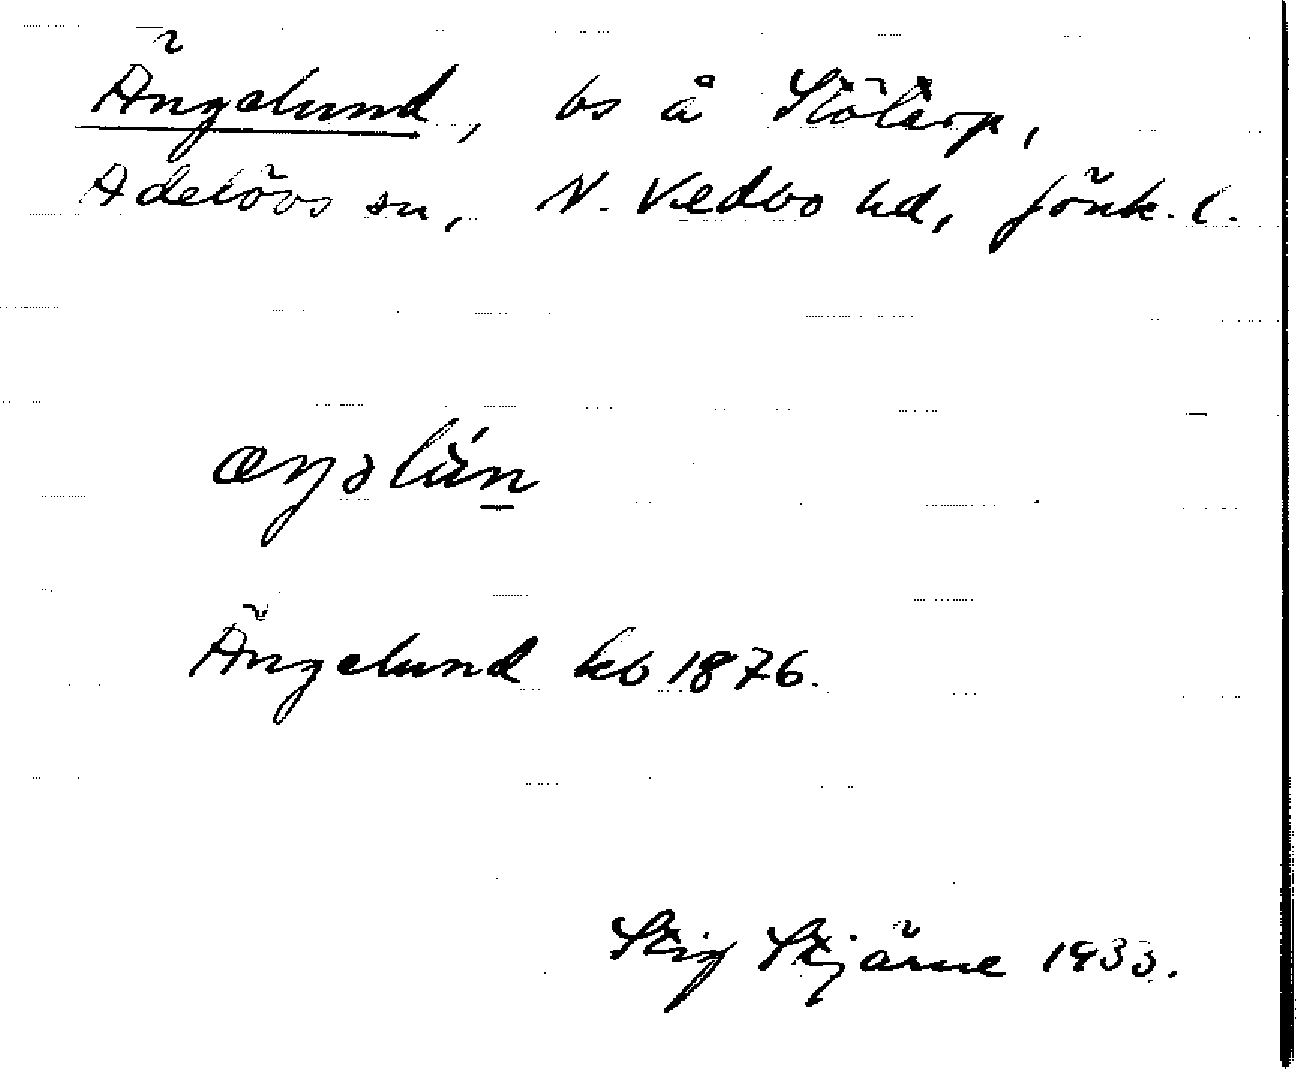 Ängelund, bs å Stötarp,
Adelövs sn, N. Vedbo hd, Jönk. l.
æŋəlùn
Ängelund kb 1876.
Stig Stjärne 1933.